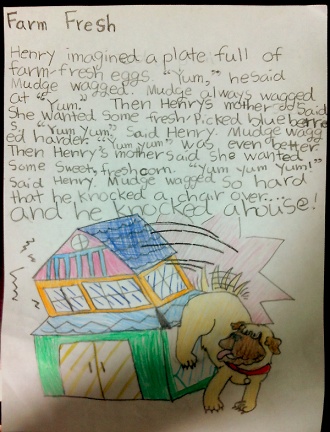 Farm Fresh
Henry imagined a plate full of
farm-fresh eggs. "Yum," he said
Mudge wagged. Mudge always wagged
at "Yum." Then Henry's mother said
She wanted some fresh Picked blue berrie
s. "Yum Yum," Said Henry. Mudge wagg
ed harder. "Yum yum" was even better.
Then Henry's mother said she wanted
some Sweet, fresh corn. "Yum yum Yum!"
Said Henry. Mudge wagged so hard
that he knocked a chair over...
and he knocked a house!